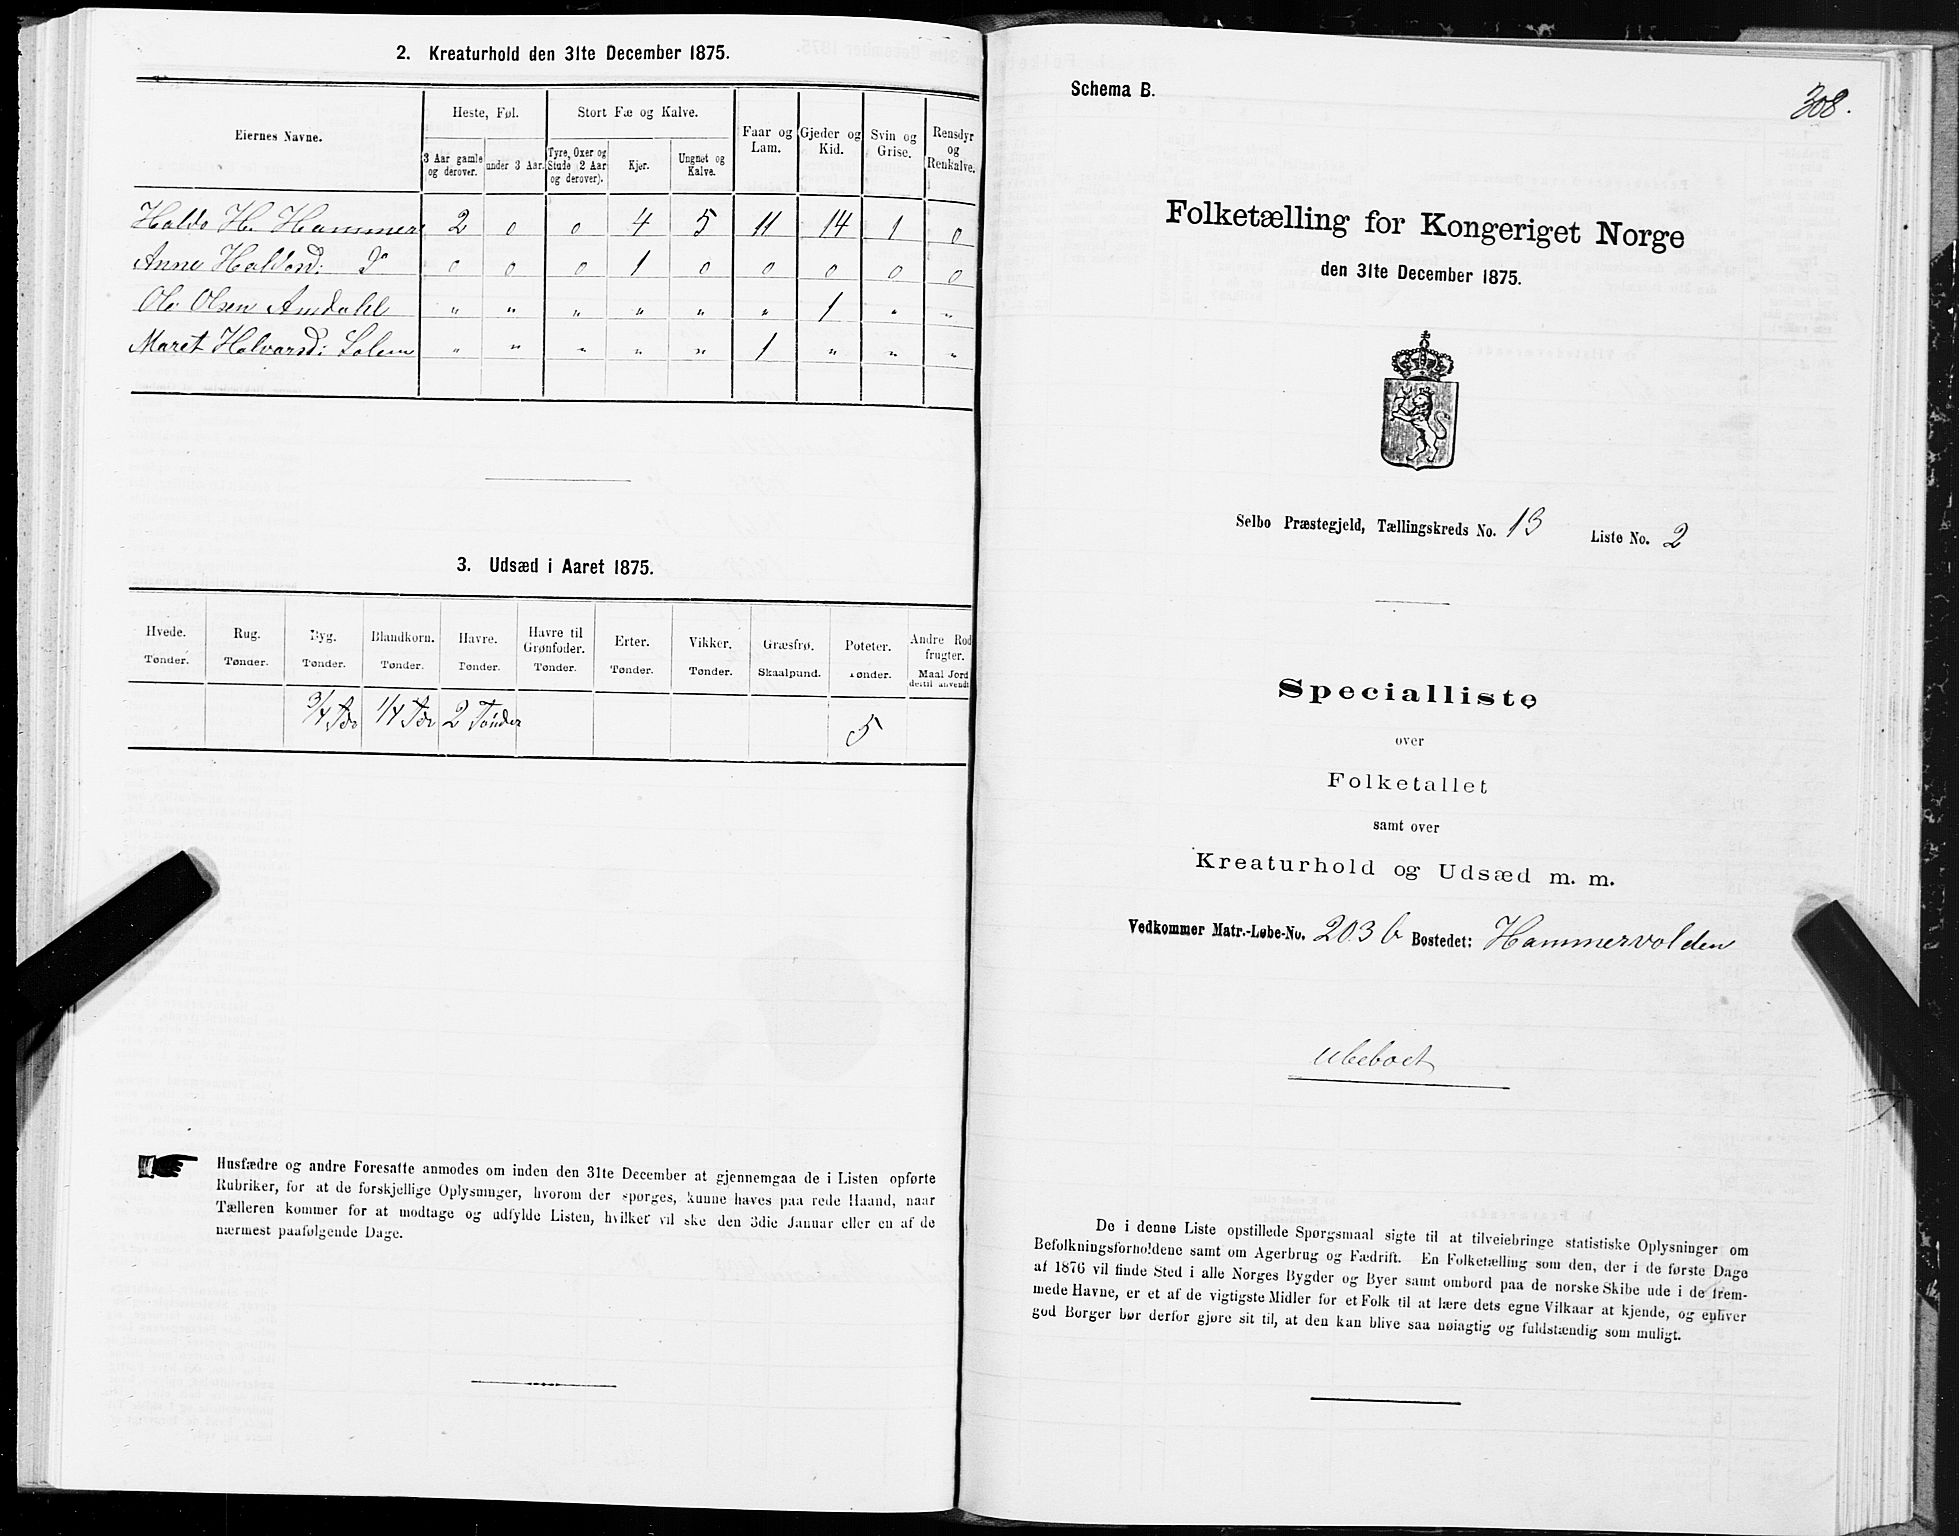 2. Kreaturhold den 31te December 1875.
Eiernes Navne.
Heste, Føl.
Stort Fæ og Kalve.
Faar og Lam.
Gjeder og Kid.
Svin og Grise.
Rensdyr og Renkalve.
3 Aar gamle og derover.
under 3 Aar.
Tyre, Oxer og Stude (2 Aar og derover).
Kjer.
Ungnet og Kalve.
Haldo H. Hammer 2 0 0 4 5 11 14 1 0
Anne Haldord: Do 0 0 0 1 0 0 0 0 0
Ole Olsen Amdahl " " " " " " 1 " "
Maret Halvarsd: Solem " " " " " 1 " " "
3. Udsæd i Aaret 1875.
Hvede. Rug. Byg. Blandkorn. Havre. Havre til Grønfoder. Erter. Vikker. Græsfrø. Poteter. Andre Rodfrugter.
Tønder. Tønder. Tønder. Tønder. Tønder. Tønder. Tønder. Tønder. Skaalpund. Tønder. Maal Jord dertil anvendt
3/4 Tør 1/4 Tør 2 Tönder 5
Husfædre og andre Foresatte anmodes om inden den 31te December at gjennemgaa de i Listen opførte
Rubriker, for at de forskjellige Oplysninger, hvorom der spørges, kunne haves paa rede Haand, naar
Tælleren kommer for at modtage og udfylde Listen, hvilket vil ske den 3die Januar eller en af de
nærmest paafølgende Dage.
Schema B.
308.
Folketælling for Kongeriget Norge
den 31te December 1875.
Selbo Præstegjeld, Tællingskreds No. 13 Liste No. 2
Specialliste
over
Folketallet
samt over
Kreaturhold og Udsæd m. m.
Vedkommer Matr.-Løbe-No. 203 b Bostedet: Hammervolden
ubeboet
De i denne Liste opstillede Spørgsmaal sigte til at tilveiebringe statistiske Oplysninger om
Befolkningsforholdene samt om Agerbrug og Fædrift. En Folketælling som den, der i de første Dage
af 1876 vil finde Sted i alle Norges Bygder og Byer samt ombord paa de norske Skibe ude i de frem-
mede Havne, er et af de vigtigste Midler for et Folk til at lære dets egne Vilkaar at kjende, og enhver
god Borger bør derfor gjøre sit til, at den kan blive saa nøiagtig og fuldstændig som muligt.